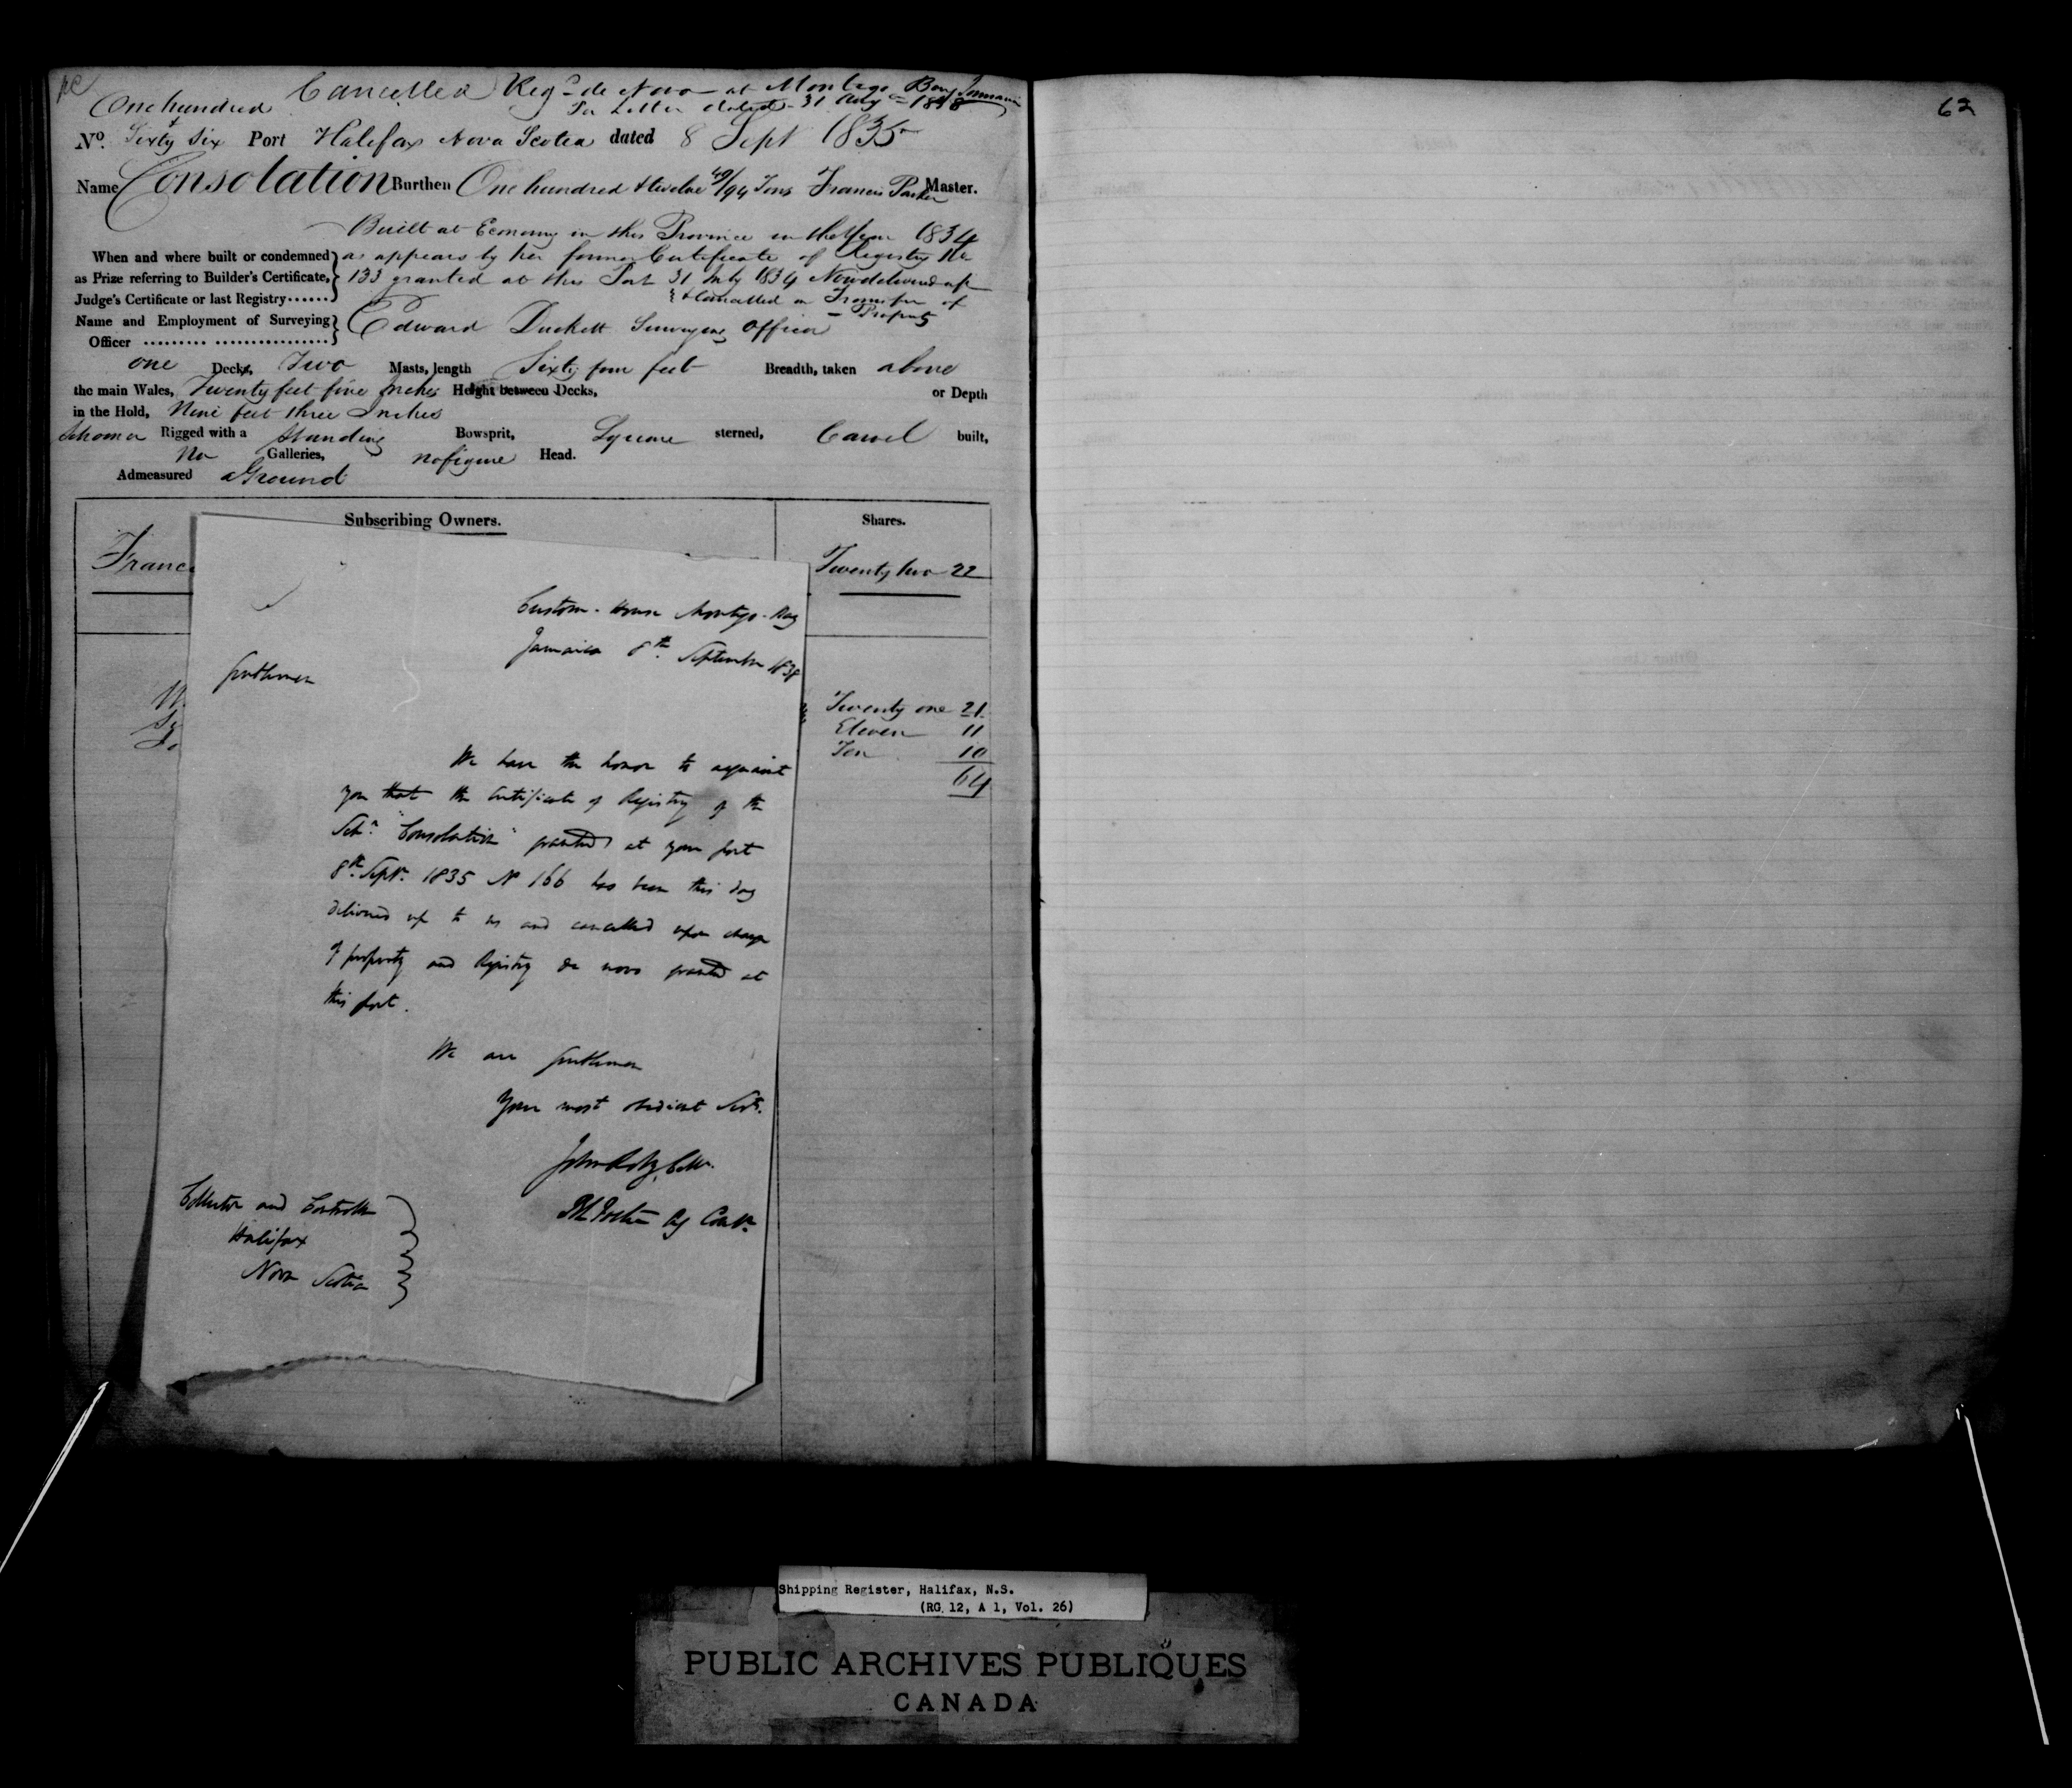 Cancelled Regd de Novo at Montego Bay Jamaica
Per Letter dated 31 Aug 1838
One hundred &
No. Sixty Six Port Halifax Nova Scotia dated 8 Sept 1835
Name Consolation Burthen One hundred & twelve 49/94 Tons Francis Parker Master.
Built at Economy in this Province in the Year 1834
When and where built or condemned as appears by her former Certificate of Registry No
as Prize referring to Builder's Certificate, 133 granted at this Port 31 July 1834 Now delivered up
Judge's Certificate or last Registry...... & Cancelled on Transfer of
Property
Name and Employment of Surveying Edward Duckett Surveying Officer
Officer ......... ................
one Decks, Two Masts, length Sixty four feet Breadth, taken above
the main Wales, Twenty feet five Inches Height between Decks, or Depth
in the Hold, Nine feet three Inches
Schooner Rigged with a Standing Bowsprit, Square sterned, Carvel built,
No Galleries, no figure Head.
Admeasured a Ground
Subscribing Owners. Shares.
Franc
Twenty two 22
Custom-House Montego-Bay
Jamaica 8th September 1838
Gentlemen
Twenty one 21
Eleven 11
Ten 10
64
We have the honor to acquaint
you that the Certificate of Registry of the
Schr. "Consolation" granted at your port
8th Septr. 1835 No 166 has been this day
delivered up to us and cancelled upon change
of property and Registry de novo granted at
this port.
We are Gentlemen
Your most obedient Servts.
John Collr.
Ag Contr.
Collector and Controller
Halifax
Nova Scotia
62
Shipping Register, Halifax, N.S.
(RG 12, A 1, Vol. 26)
PUBLIC ARCHIVES PUBLIQUES
CANADA